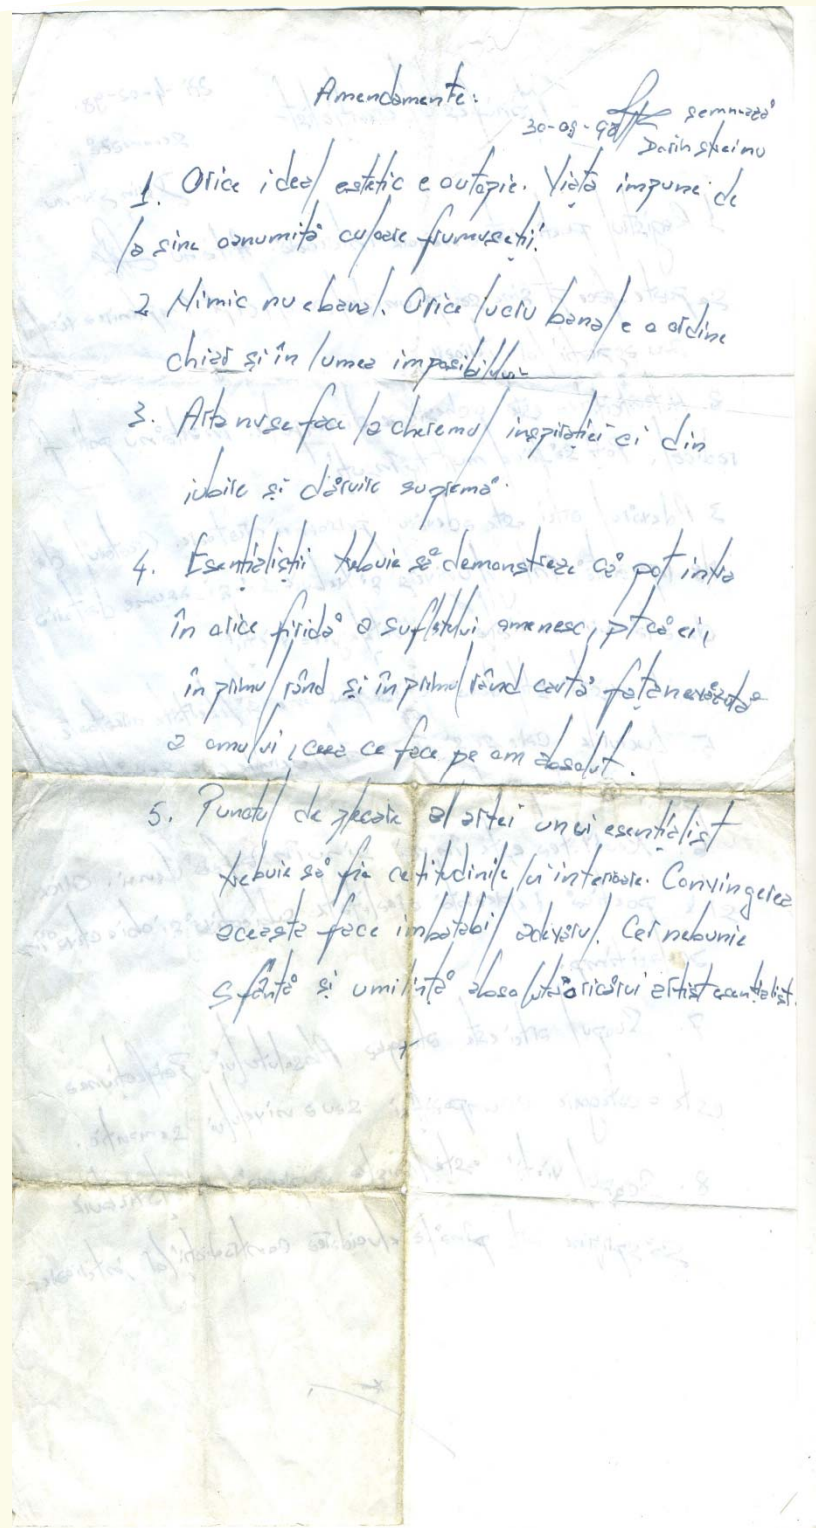 Amendamente:
30-09-98 semnează
Dorin Streinu
1. Orice ideal estetic e o utopie. Viața impune de
la sine o anumită culoare frumuseții.
2. Nimic nu e banal. Orice lucru banal e o ordine
chiar și în lumea imposibilului
3. Arta nu se face la chemarul inspirației ci din
iubire și dăruire supremă.
4. Esențialiștii trebuie să demonstreze că pot intra
în orice firidă a sufletului omenesc, pt că ei,
în primul rând și în primul rând caută fața nevăzută
a omului, ceea ce face pe om absolut.
5. Punctul de plecare al artei unui esențialist
trebuie să fie certitudinile lui interioare. Convingerea
aceasta face imbatabil adevărul. Cer nebunie
sfântă și umilință absolută oricărui artist esențialist.